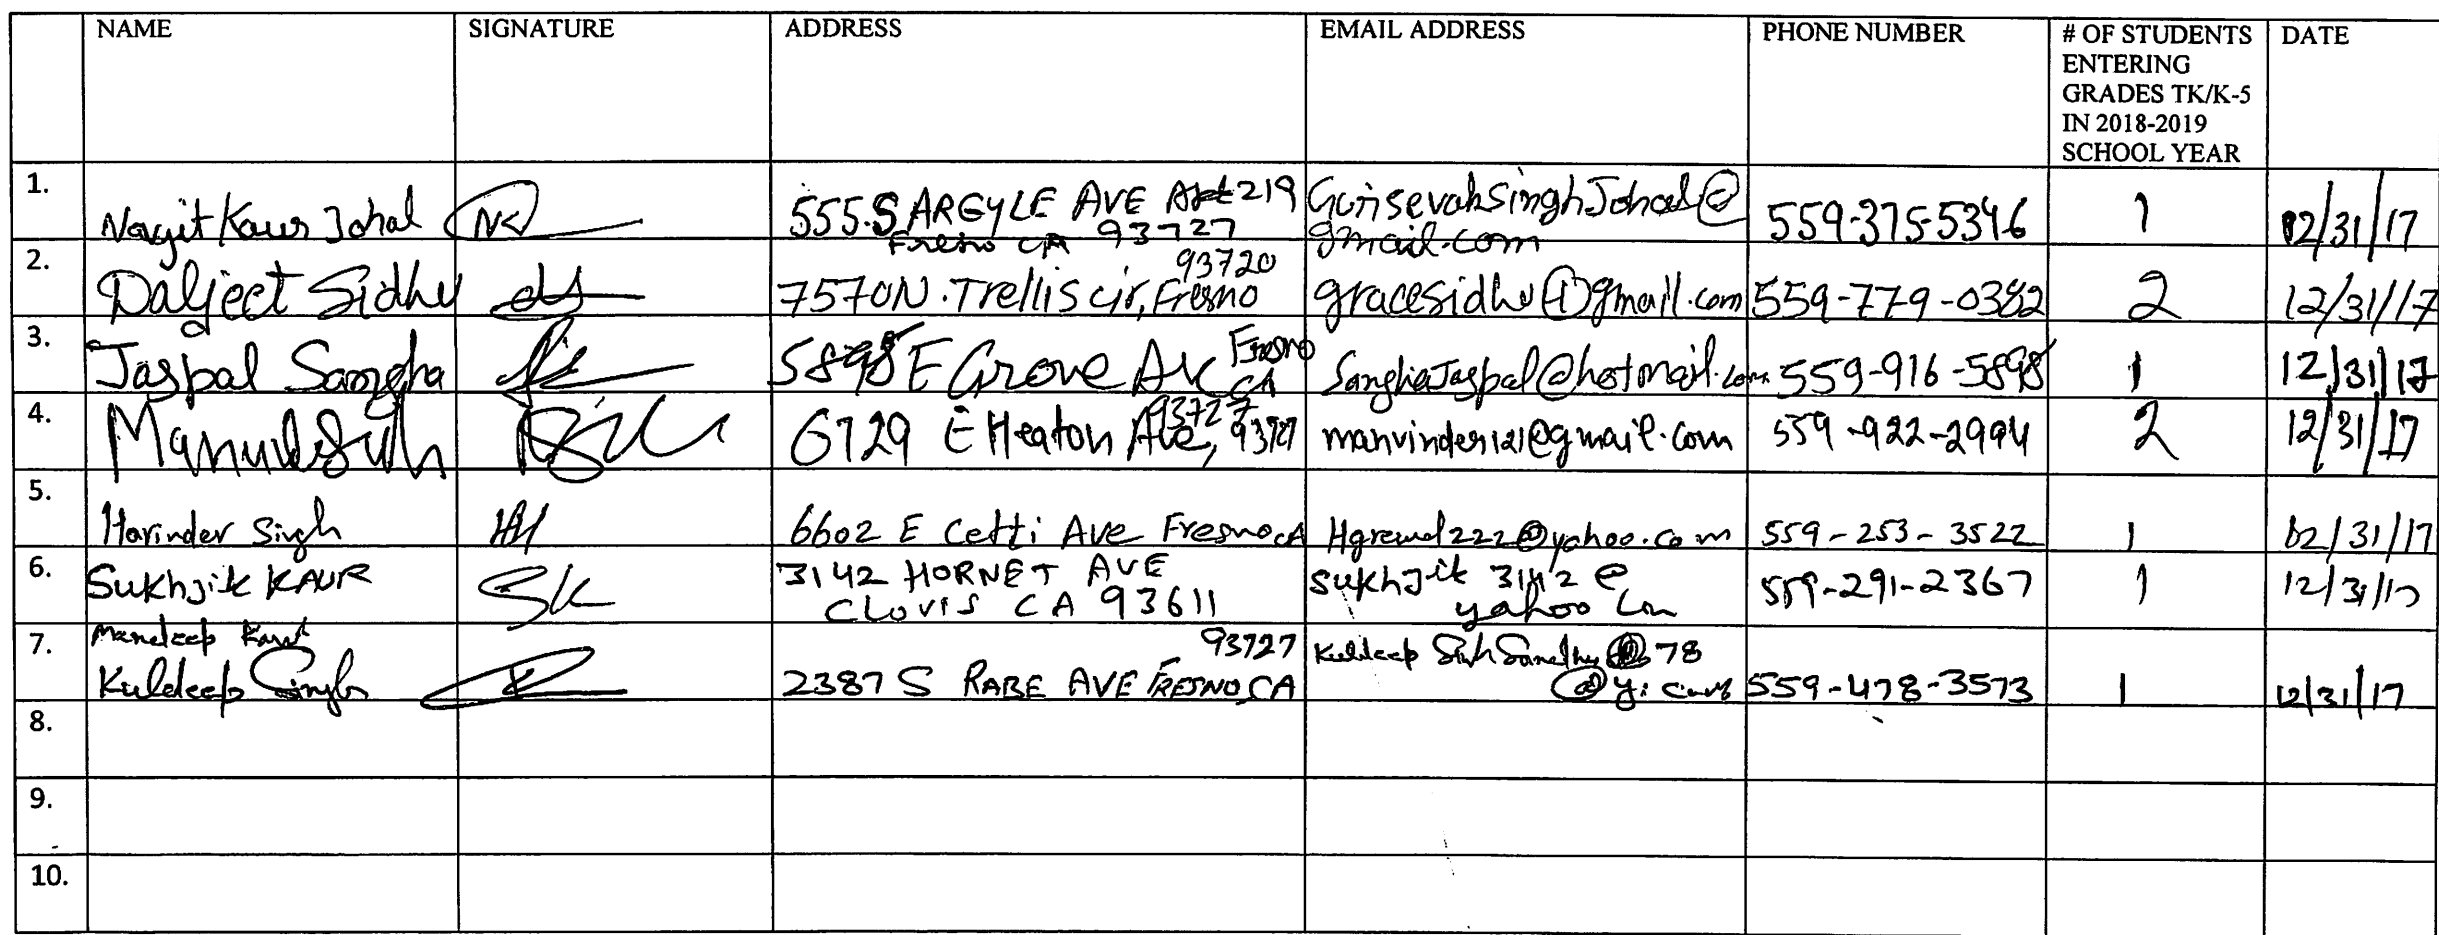 NAME SIGNATURE ADDRESS EMAIL ADDRESS PHONE NUMBER # OF STUDENTS ENTERING GRADES TK/K-5 IN 2018-2019 SCHOOL YEAR DATE
1. Kaur Johal NK 555 S ARGYLE AVE Apt 219 Fresno CA 93727 @gmail.com 559-375-5346 1 12/31/17
2. Daljeet Sidhu ds 7570 N. Trellis cir, Fresno 93720 gracesidhu1@gmail.com 559-779-0382 2 12/31/17
3. Jaspal Sangha 5898 E Grove Av Fresno CA 93727 SanghaJaspal@hotmail.com 559-916-5898 1 12/31/17
4. 6729 E Heaton Ave, 93727 manvinder121@gmail.com 559-922-2994 2 12/31/17
5. Harinder Singh 6602 E Cetti Ave Fresno CA 559-253-3522 1 12/31/17
6. Sukhjit KAUR SK 3142 HORNET AVE CLOVIS CA 93611 sukhjit3142@yahoo 559-291-2367 1 12/31/17
7. Mandeep Kaur Kuldeep Singh 2387 S RABE AVE FRESNO, CA 93727 559-478-3573 1 12/31/17
8.
9.
10.